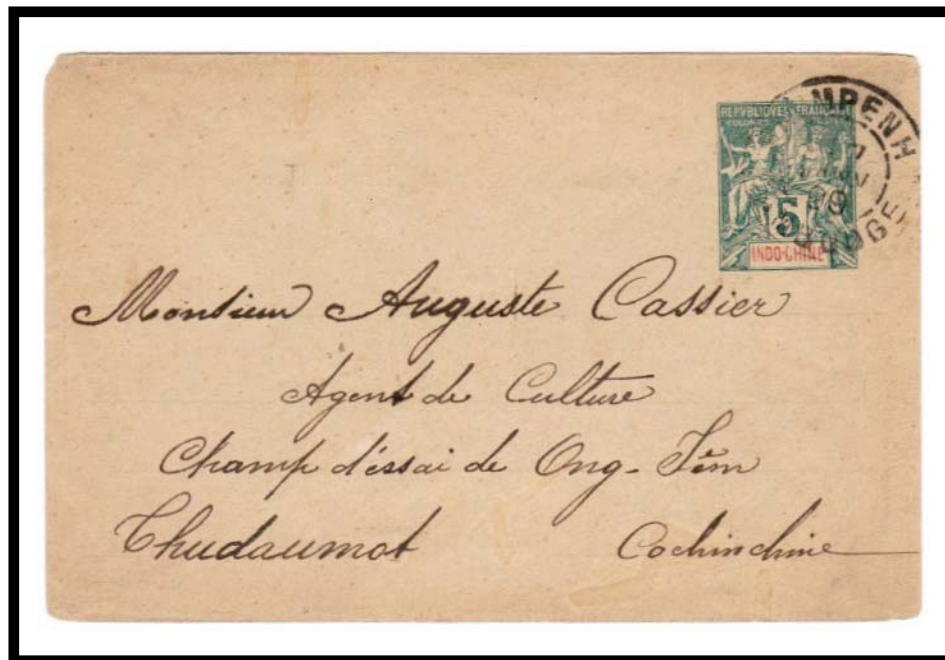 REPVBLIQVE FRANÇAISE
COLONIES
5
INDO-CHINE
MPENH
99
Monsieur Auguste Cassier
Agent de Culture
Champ d'éssai de Ong-Iêm
Thudaumot Cochinchine